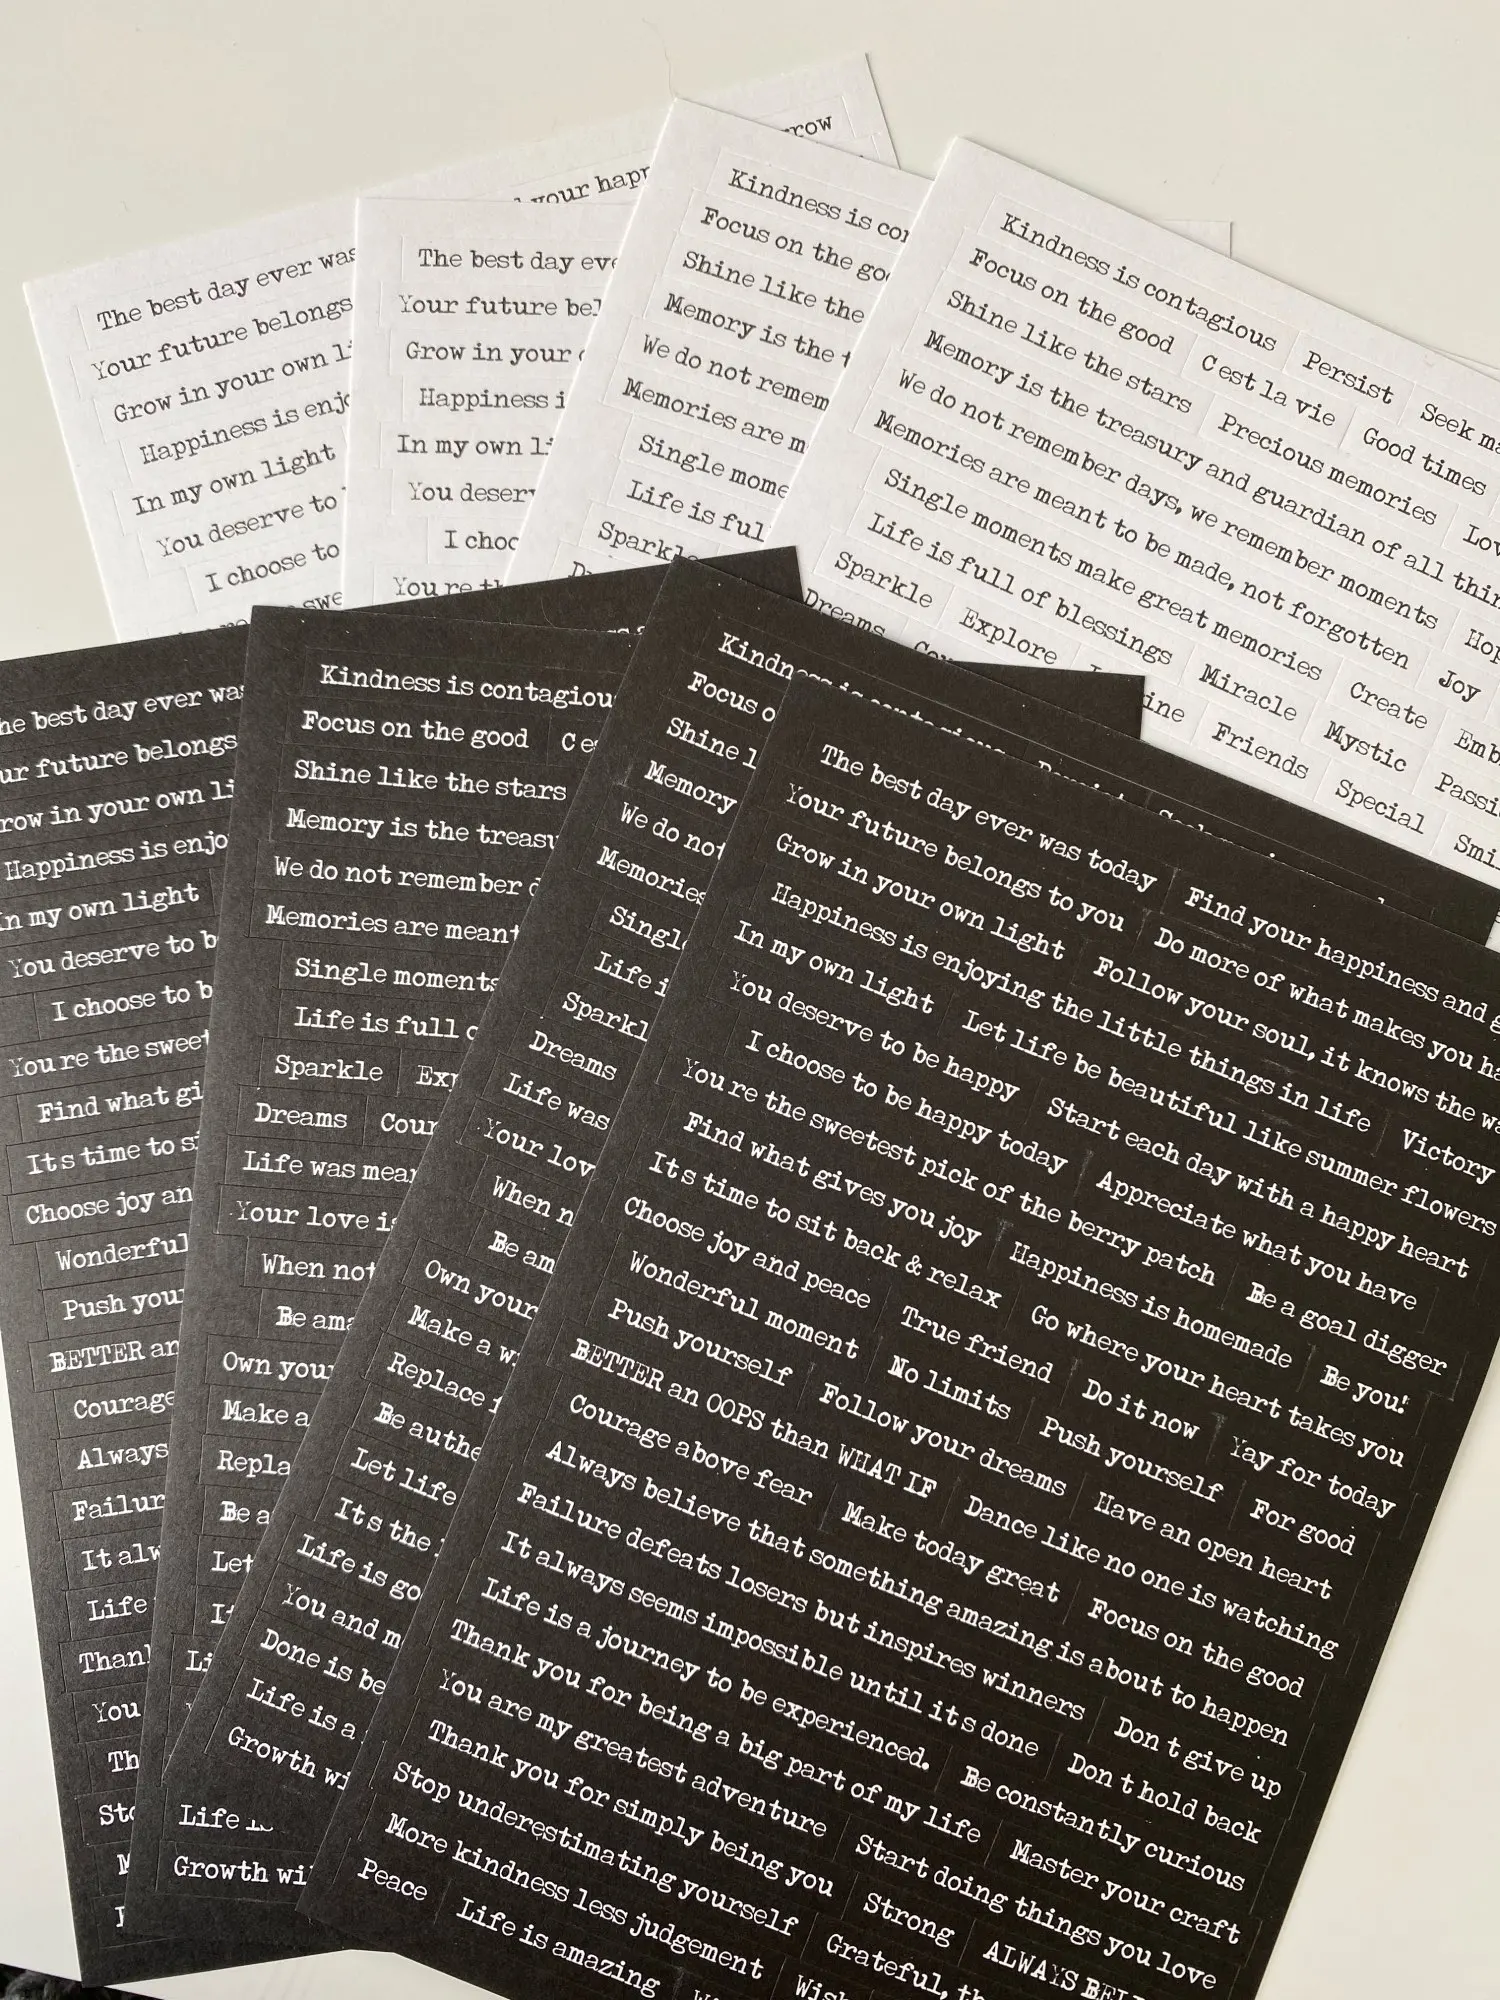 The best day ever was
Your future belongs
Grow in your own
Happiness is
In my own light
You deserve to
I choose to
your
The best day
Your future
Grow in your
Happiness
In my own
You
I
Kindness is
Focus on the
Shine like the
Memory is the
We do not
Memories are
Single
Life is
Kindness is contagious Persist Seek
Focus on the good C est la vie Good times
Shine like the stars Precious memories
Memory is the treasury and guardian of all
We do not remember days, we remember moments
Memories are meant to be made, not forgotten Joy
Single moments make great memories Create
Life is full of blessings Miracle Mystic
Sparkle Explore Friends Special
Dreams
best day ever
future belongs
in your own
Happiness is
my own light
You deserve to
I choose to
You re the
Find what
It s time to
Choose joy
Wonderful
Push
BETTER
Courage
Always
It
Life
You
Kindness is
Focus on the good
Shine like the stars
Memory is the
We do not remember
Memories are meant
Single moments
Life is full
Sparkle
Dreams
Life was
Your love
When not
Be
Own
Make a
Be
Let
Life
Growth
Focus
Shine
Memory
We do not
Memories
Life
Dreams
Life was
Your
When
Be
Own your
Make a
Replace
Be
Let life
It s the
Life is
You and
Done is
Life is a
Growth
The best day ever was today Find your happiness and
Your future belongs to you Do more of what makes you
Grow in your own light Follow your soul, it knows the
Happiness is enjoying the little things in life Victory
In my own light Let life be beautiful like summer flowers
You deserve to be happy Start each day with a happy heart
I choose to be happy today Appreciate what you have
You re the sweetest pick of the berry patch Be a goal digger
Find what gives you joy Happiness is homemade Be you!
It s time to sit back & relax Go where your heart takes you
Choose joy and peace True friend Do it now Yay for today
Wonderful moment No limits Push yourself For good
Push yourself Follow your dreams Have an open heart
BETTER an OOPS than WHAT IF Dance like no one is watching
Courage above fear Make today great Focus on the good
Always believe that something amazing is about to happen
Failure defeats losers but inspires winners Don t give up
It always seems impossible until it s done Don t hold back
Life is a journey to be experienced. Be constantly curious
Thank you for being a big part of my life Master your craft
You are my greatest adventure Start doing things you love
Thank you for simply being you Strong ALWAYS
Stop underestimating yourself Grateful,
More kindness less judgement
Peace Life is amazing